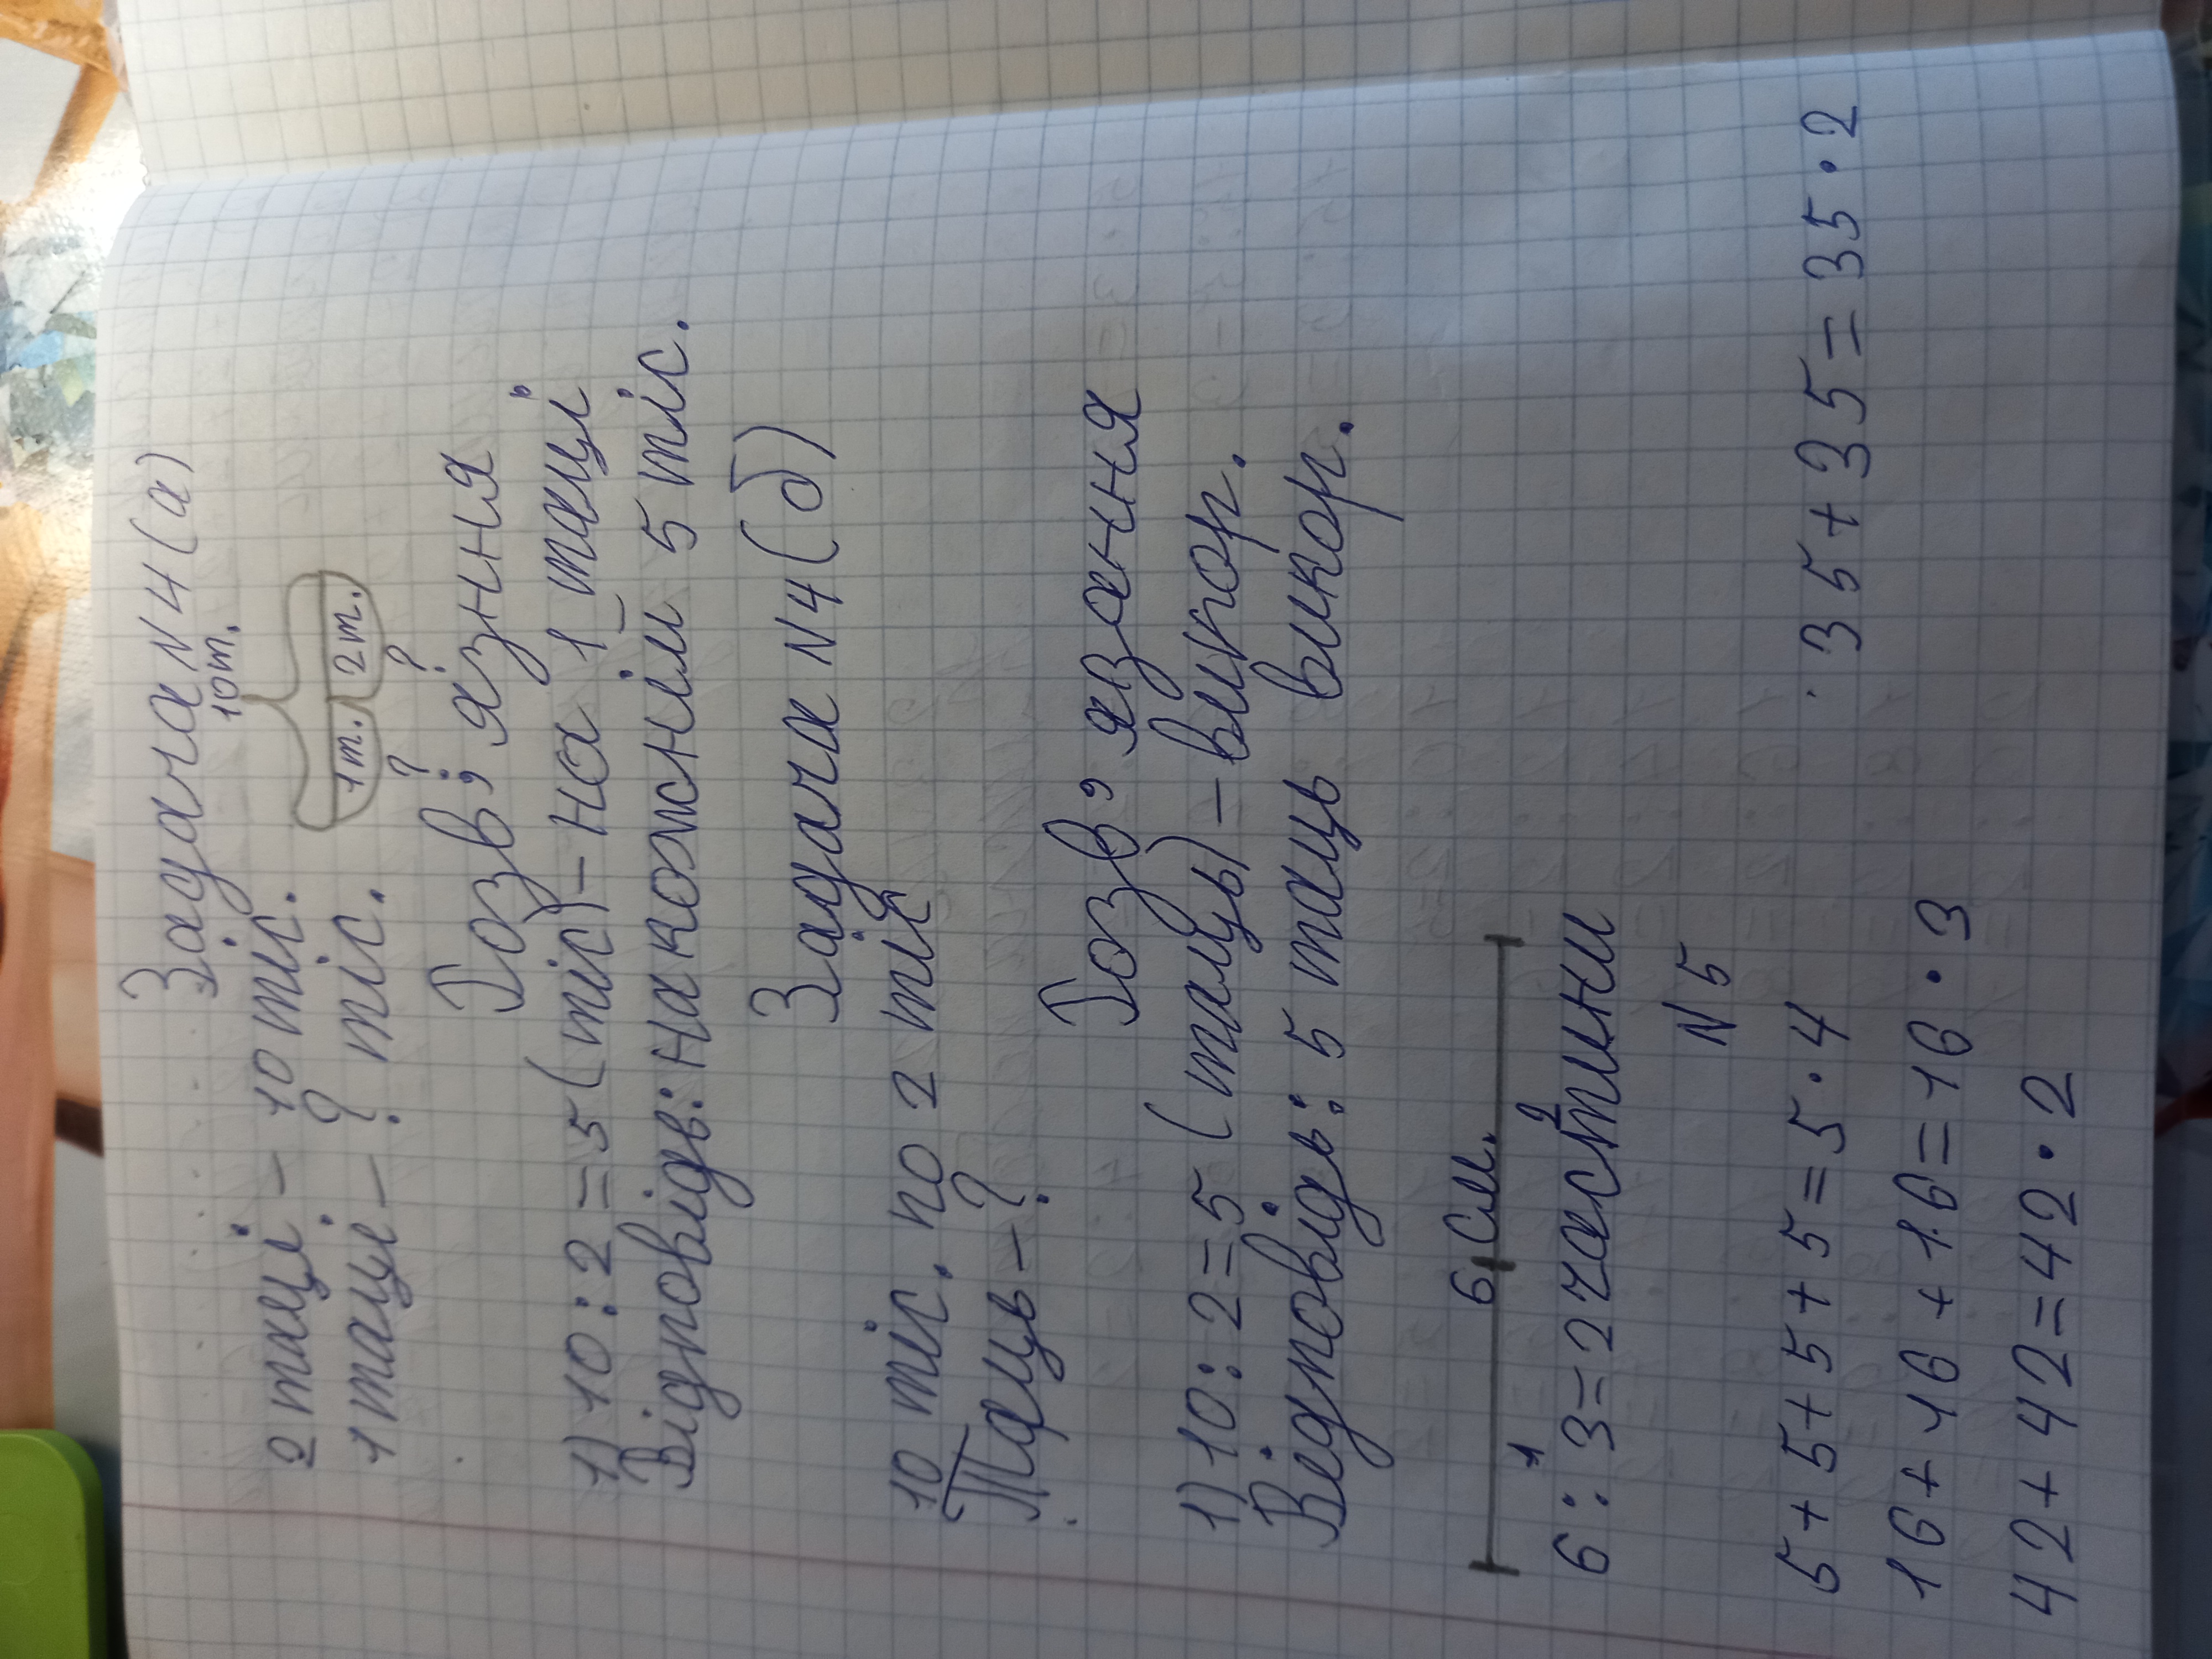 Задача N 4 (а)
10т.
2 таці - 10 тіс.
1т. 2т.
1 таці - ? тіс.
? ?
Розв'язня
1) 10 : 2 = 5 (тіс) - На 1 таці
Відповідь: На кожній 5 тіс.
Задача N 4 (б)
10 тіс. по 2 тіс
Таць - ?
Розв'язання
1) 10 : 2 = 5 (таць) - викор.
Відповідь: 5 таць викор.
6 см.
1 2
6 : 3 = 2 частини
N 5
5 + 5 + 5 + 5 = 5 · 4 35 + 35 = 35 · 2
16 + 16 + 16 = 16 · 3
42 + 42 = 42 · 2